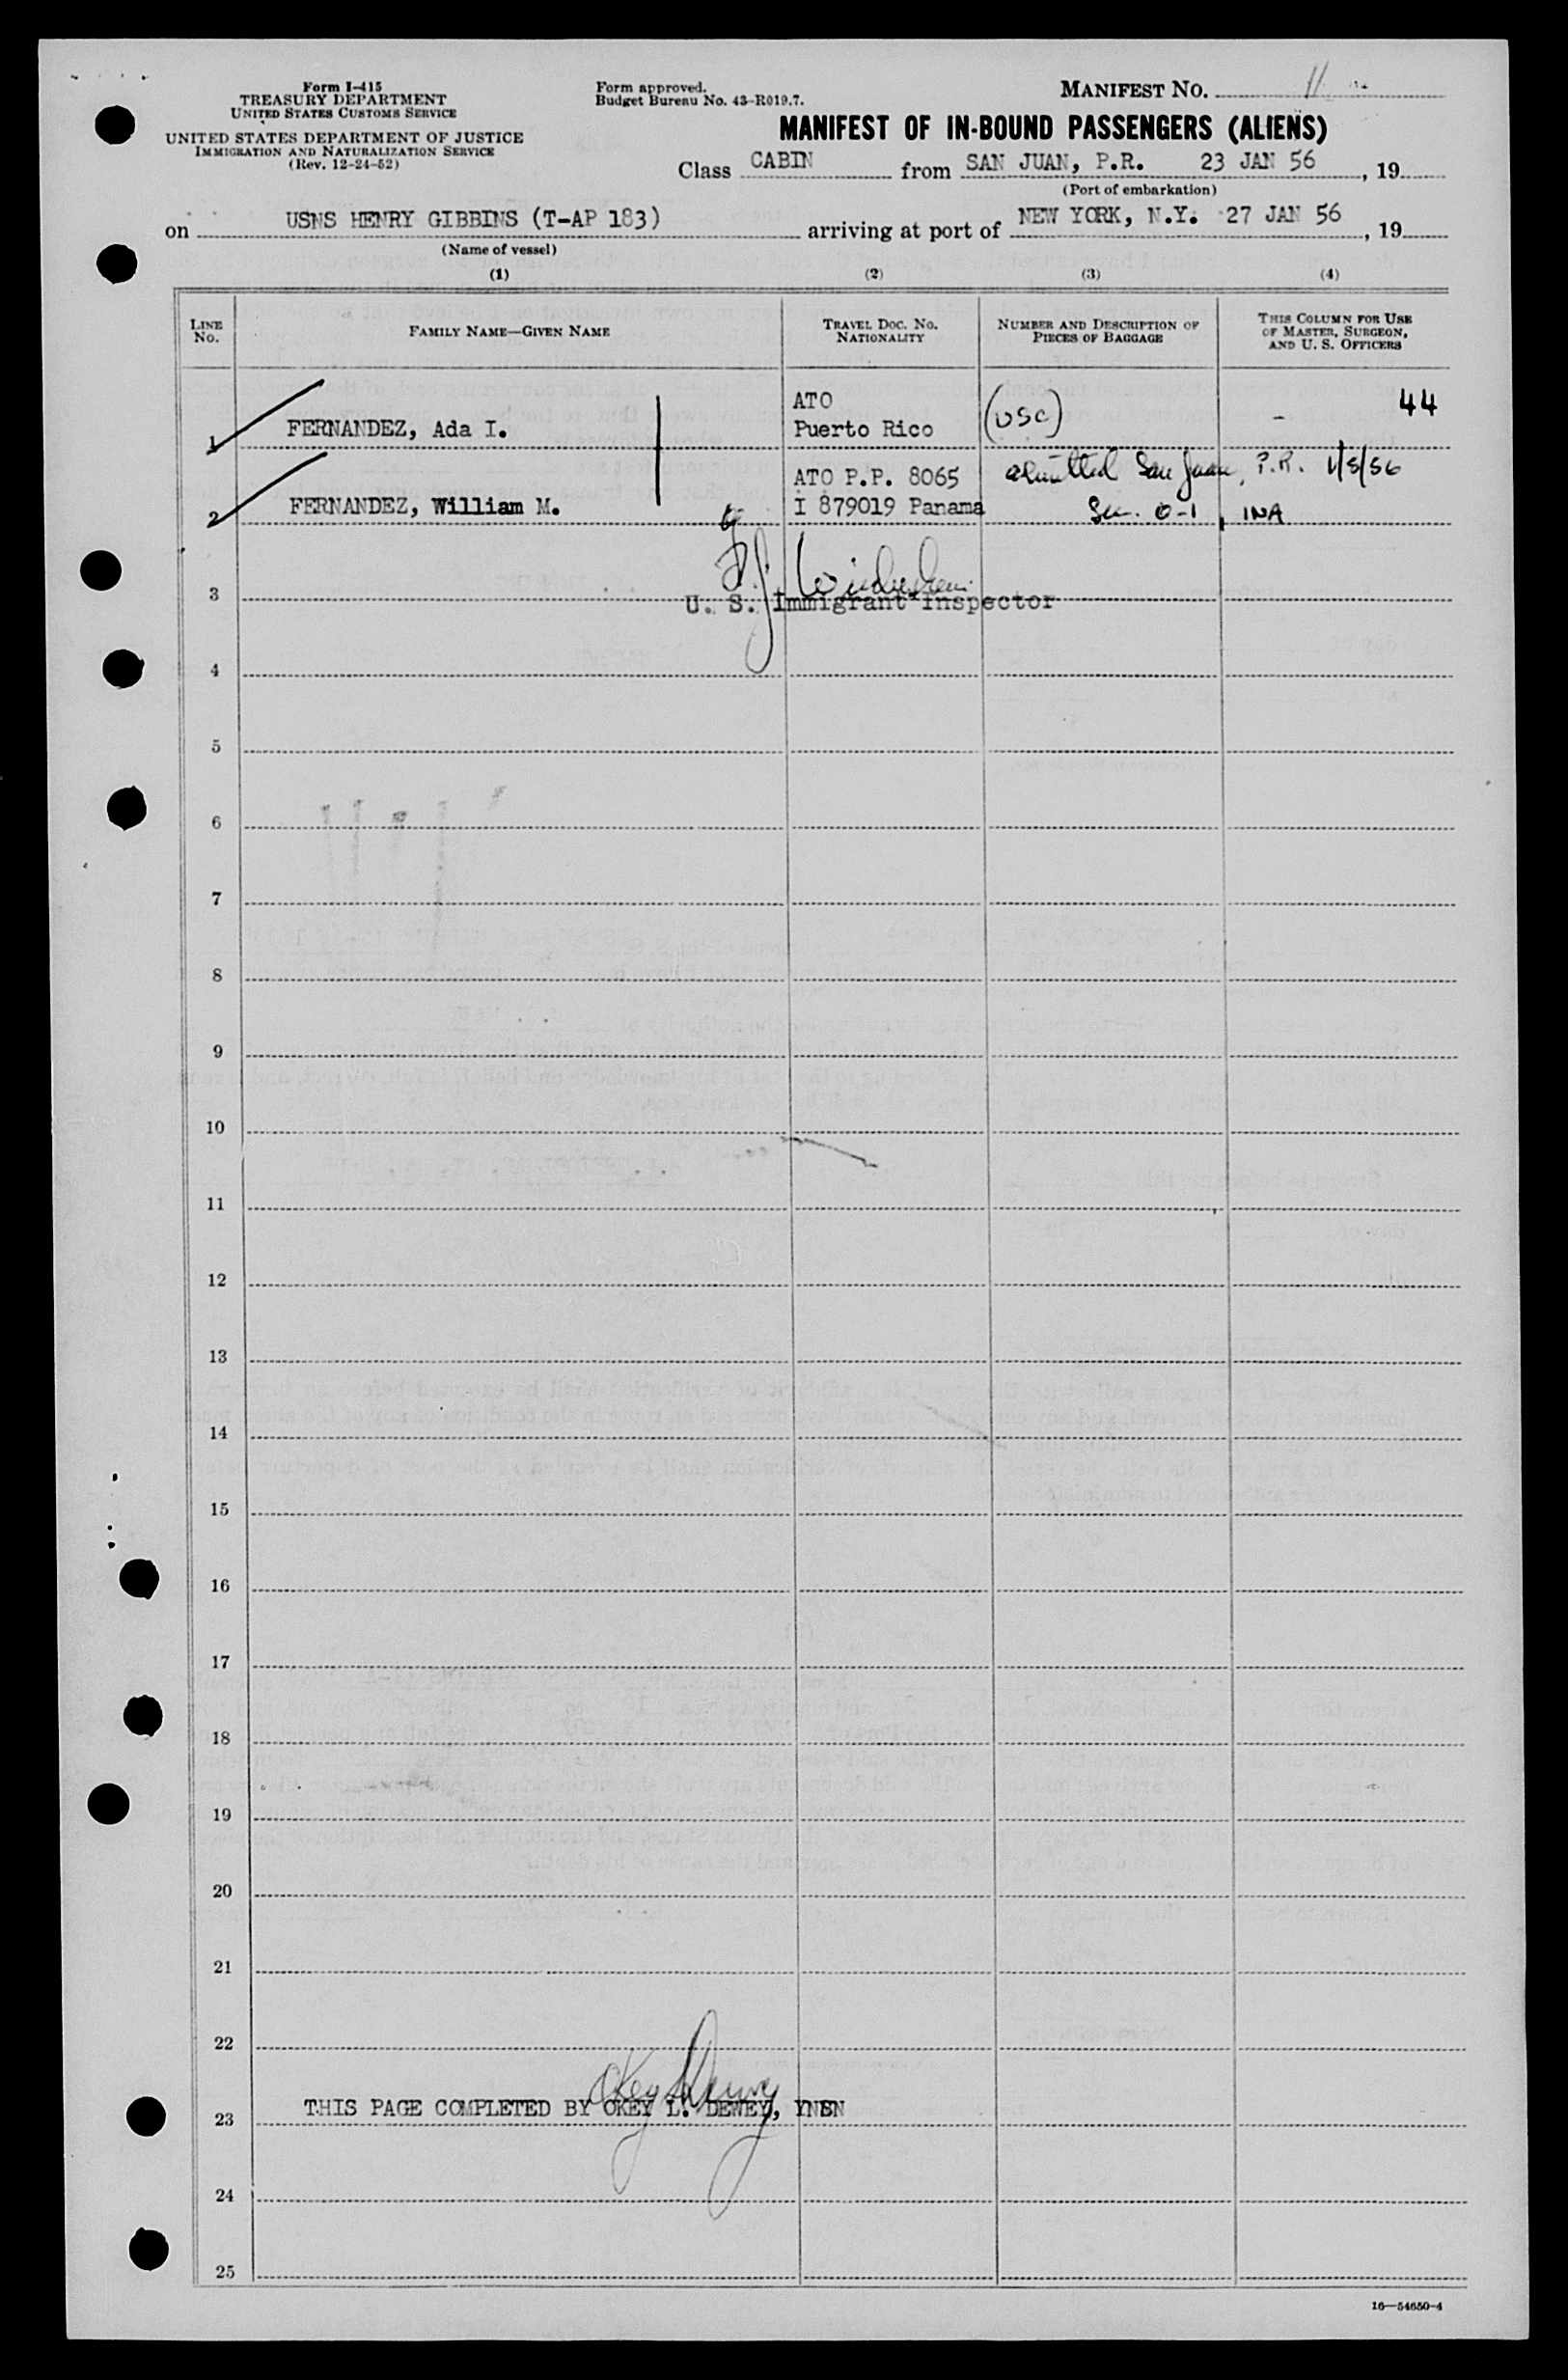 Form I-415
TREASURY DEPARTMENT
UNITED STATES CUSTOMS SERVICE
UNITED STATES DEPARTMENT OF JUSTICE
IMMIGRATION AND NATURALIZATION SERVICE
(Rev. 12-24-52)
Form approved.
Budget Bureau No. 43-R019.7.
MANIFEST NO. 11
MANIFEST OF IN-BOUND PASSENGERS (ALIENS)
Class CABIN from SAN JUAN, P.R. 23 JAN 56, 19
(Port of embarkation)
on USNS HENRY GIBBINS (T-AP 183) arriving at port of NEW YORK, N.Y. 27 JAN 56, 19
(Name of vessel)
(1) (2) (3) (4)
LINE NO. FAMILY NAME—GIVEN NAME TRAVEL DOC. NO. NATIONALITY NUMBER AND DESCRIPTION OF PIECES OF BAGGAGE THIS COLUMN FOR USE OF MASTER, SURGEON, AND U. S. OFFICERS
ATO 44
1 FERNANDEZ, Ada I. Puerto Rico (USC) -
ATO P.P. 8065 admitted San Juan, P.R. 1/5/56
2 FERNANDEZ, William M. I 879019 Panama Sec. 0-1, INA
3
U. S. Immigrant Inspector
4
5
6
7
8
9
10
11
12
13
14
15
16
17
18
19
20
21
22
Okey L Dewey
23 THIS PAGE COMPLETED BY OKEY L. DEWEY, YNSN
24
25
16—54650-4